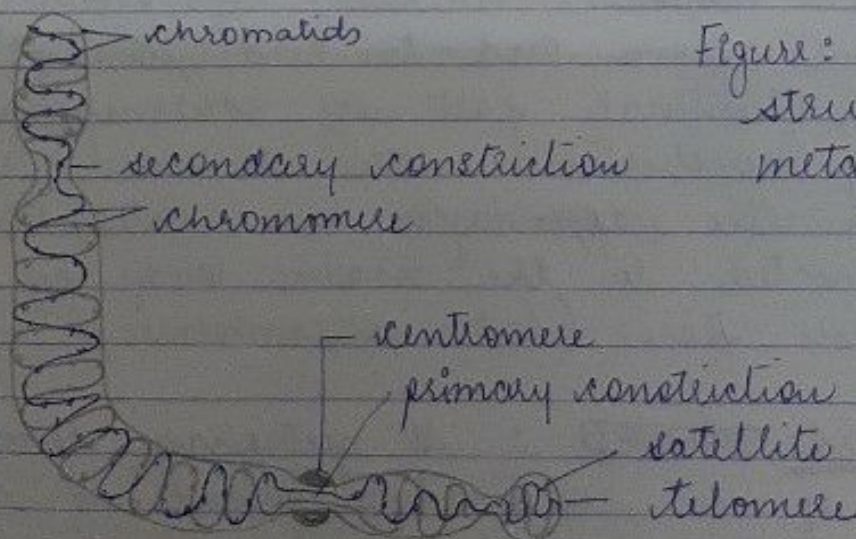 chromatids
Figure:
secondary constriction
chromomere
centromere
primary constriction
satellite
telomere